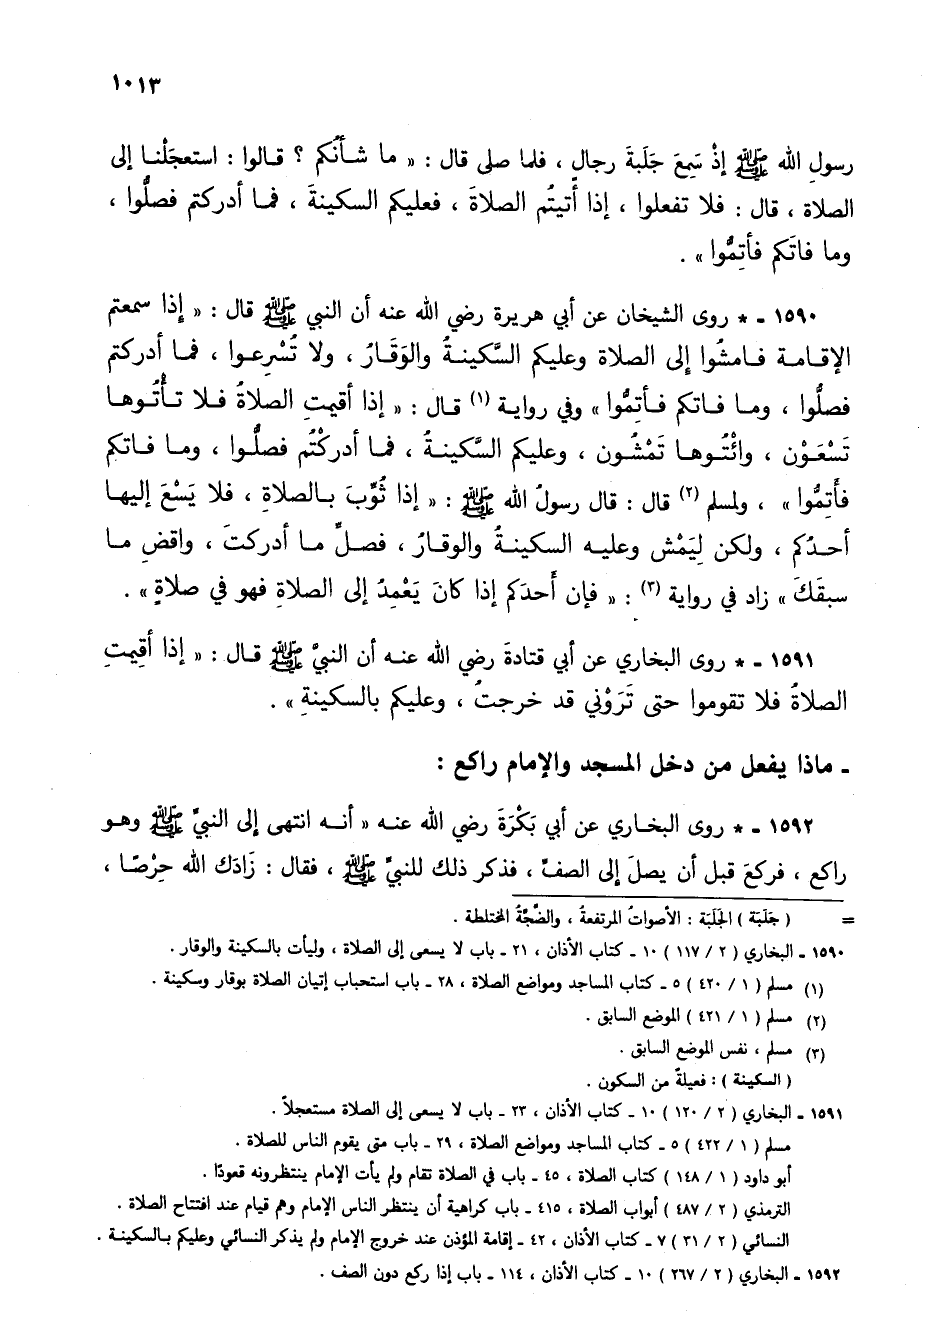 ١٠١٣
رسولِ الله ﷺ إذْ سَمِعَ جَلَبةَ رجالٍ ، فلما صلى قال : « ما شأنُكم ؟ قالوا : استعجَلْنا إلى
الصلاة ، قال : فلا تفعلوا ، إذا أتيتُم الصلاةَ ، فعليكم السكينةَ ، فما أدركتم فصلُّوا ،
وما فاتَكم فأتِمُّوا » .
١٥٩٠ ـ * روى الشيخان عن أبي هريرة رضي الله عنه أن النبي ﷺ قال : « إذا سمعتم
الإقامة فامشُوا إلى الصلاة وعليكم السَّكينةُ والوَقَارُ ، ولا تُسْرِعوا ، فما أدركتم
فصلُّوا ، وما فاتكم فأتِمُّوا » وفي رواية (١) قال : « إذا أقيمتِ الصلاةُ فلا تأتُوها
تَسْعَوْن ، وائْتُوها تَمْشُون ، وعليكم السَّكينةُ ، فما أدركْتُم فصلُّوا ، وما فاتكم
فأتِمُّوا » ، ولمسلم (٢) قال : قال رسولُ الله ﷺ : « إذا ثُوِّبَ بالصلاةِ ، فلا يَسْعَ إليها
أحدُكم ، ولكن لِيَمْشِ وعليه السكينةُ والوقارُ ، فصلِّ ما أدركتَ ، واقضِ ما
سبقَكَ » زاد في رواية (٣) : « فإن أحدَكم إذا كانَ يَعْمِدُ إلى الصلاةِ فهو في صلاةٍ » .
١٥٩١ ـ * روى البخاري عن أبي قتادةَ رضي الله عنه أن النبيَّ ﷺ قال : « إذا أقِيمتِ
الصلاةُ فلا تقوموا حتى تَرَوْني قد خرجتُ ، وعليكم بالسكينةِ » .
ـ ماذا يفعل من دخل المسجد والإمام راكع :
١٥٩٢ ـ * روى البخاري عن أبي بَكْرَةَ رضي الله عنه « أنه انتهى إلى النبيِّ ﷺ وهو
راكع ، فركعَ قبل أن يصلَ إلى الصفِّ ، فذكر ذلك للنبيِّ ﷺ ، فقال : زَادَك الله حِرْصًا ،
= ( جَلَبَة ) الجَلَبَة : الأصواتُ المرتفعةُ ، والضَّجَّةُ المختلطة .
١٥٩٠ ـ البخاري ( ٢ / ١١٧ ) ١٠ ـ كتاب الأذان ، ٢١ ـ باب لا يسعى إلى الصلاة ، وليأت بالسكينة والوقار .
(١) مسلم ( ١ / ٤٢٠ ) ٥ ـ كتاب المساجد ومواضع الصلاة ، ٢٨ ـ باب استحباب إتيان الصلاة بوقار وسكينة .
(٢) مسلم ( ١ / ٤٢١ ) الموضع السابق .
(٣) مسلم ، نفس الموضع السابق .
( السكينة ) : فعيلةٌ من السكون .
١٥٩١ ـ البخاري ( ٢ / ١٢٠ ) ١٠ ـ كتاب الأذان ، ٢٣ ـ باب لا يسعى إلى الصلاة مستعجلاً .
مسلم ( ١ / ٤٢٢ ) ٥ ـ كتاب المساجد ومواضع الصلاة ، ٢٩ ـ باب متى يقوم الناس للصلاة .
أبو داود ( ١ / ١٤٨ ) كتاب الصلاة ، ٤٥ ـ باب في الصلاة تقام ولم يأت الإمام ينتظرونه قعودًا .
الترمذي ( ٢ / ٤٨٧ ) أبواب الصلاة ، ٤١٥ ـ باب كراهية أن ينتظر الناس الإمام وهم قيام عند افتتاح الصلاة .
النسائي ( ٢ / ٣١ ) ٧ ـ كتاب الأذان ، ٤٢ ـ إقامة المؤذن عند خروج الإمام ولم يذكر النسائي وعليكم بالسكينة .
١٥٩٢ ـ البخاري ( ٢ / ٢٦٧ ) ١٠ ـ كتاب الأذان ، ١١٤ ـ باب إذا ركع دون الصف .